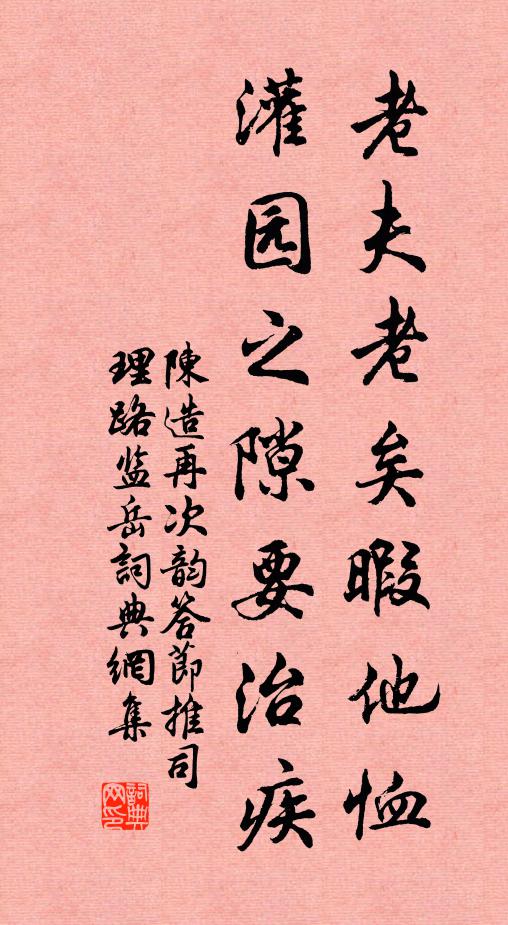 老夫老矣暇他恤
灌园之隙要治疾
陳造再次韵答節推司
理路监岳詞典網集
詞典网印